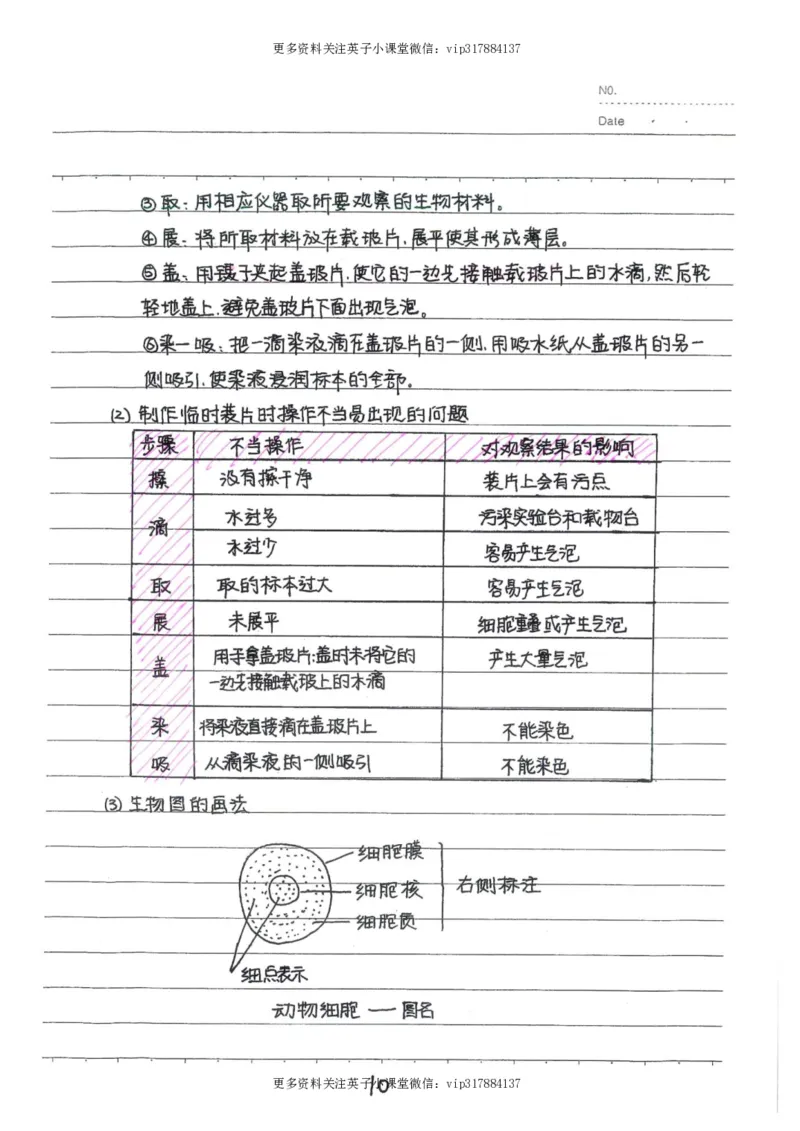 更多资料关注英子小课堂微信：vip317884137
NO.
Date
③取：用相应仪器取所要观察的生物材料。
④展：将所取材料放在载玻片，展平使其形成薄层。
⑤盖：用镊子夹起盖玻片，使它的一边先接触载玻片上的水滴，然后轻
轻地盖上，避免盖玻片下面出现气泡。
⑥染一吸：把一滴染液滴在盖玻片的一侧，用吸水纸从盖玻片的另一
侧吸引，使染液浸润标本的全部。
(2) 制作临时装片时操作不当易出现的问题
步骤 不当操作 对观察结果的影响
擦 没有擦干净 装片上会有污点
滴 水过多 污染实验台和载物台
水过少 容易产生气泡
取 取的标本过大 容易产生气泡
展 未展平 细胞重叠或产生气泡
盖 用手拿盖玻片；盖时未将它的 产生大量气泡
一边先接触载玻上的水滴
染 将染液直接滴在盖玻片上 不能染色
吸 从滴染液的一侧吸引 不能染色
(3) 生物图的画法
细胞膜
细胞核 右侧标注
细胞质
细点表示
动物细胞 — 图名
更多资料关注英子小课堂微信：vip317884137
10